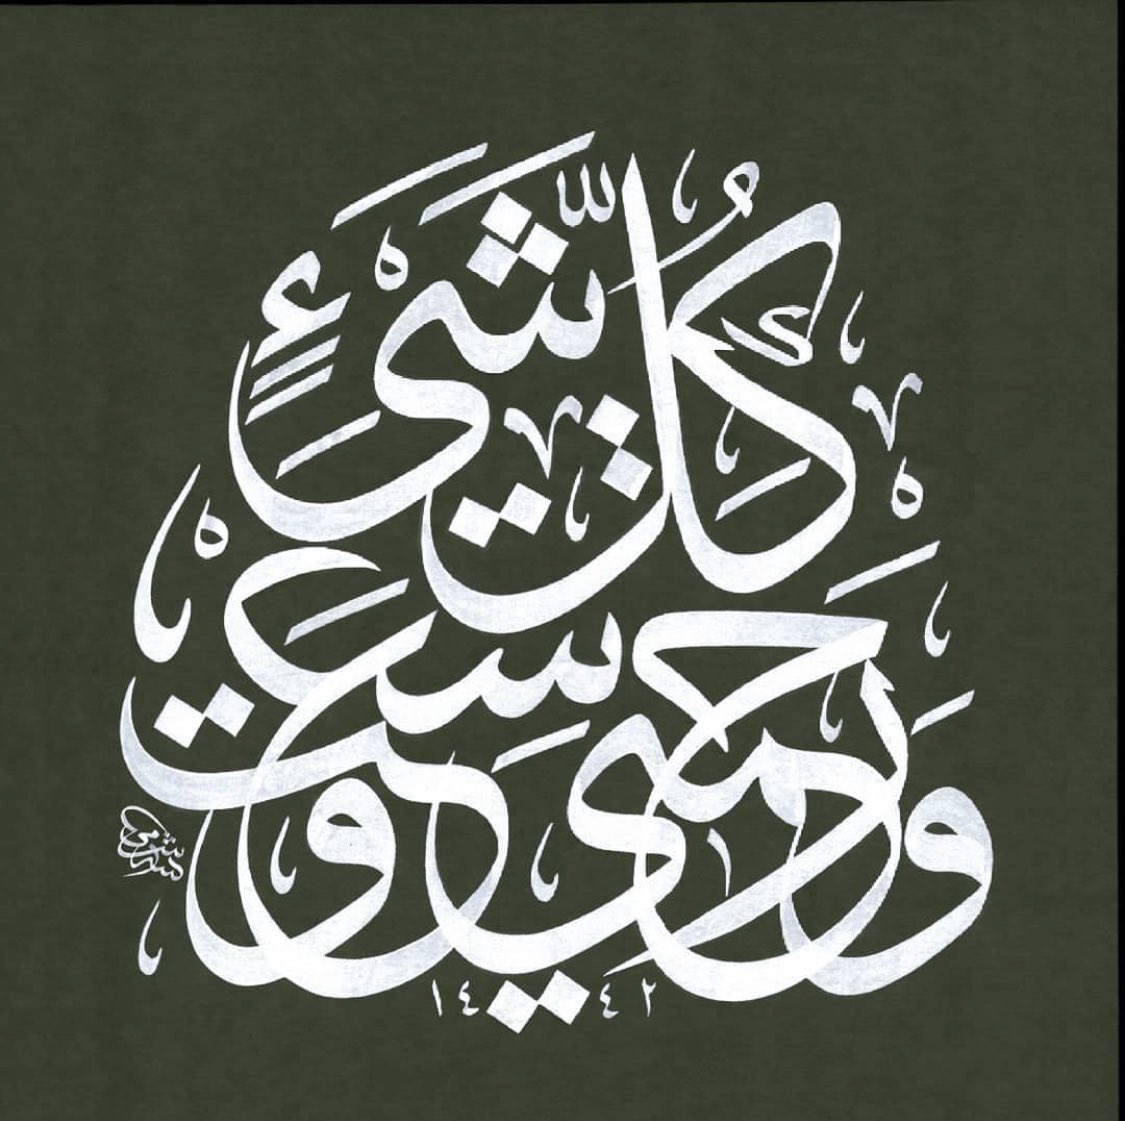 وَرَحْمَتِي وَسِعَتْ كُلَّ شَيْءٍ
١٤٤٢